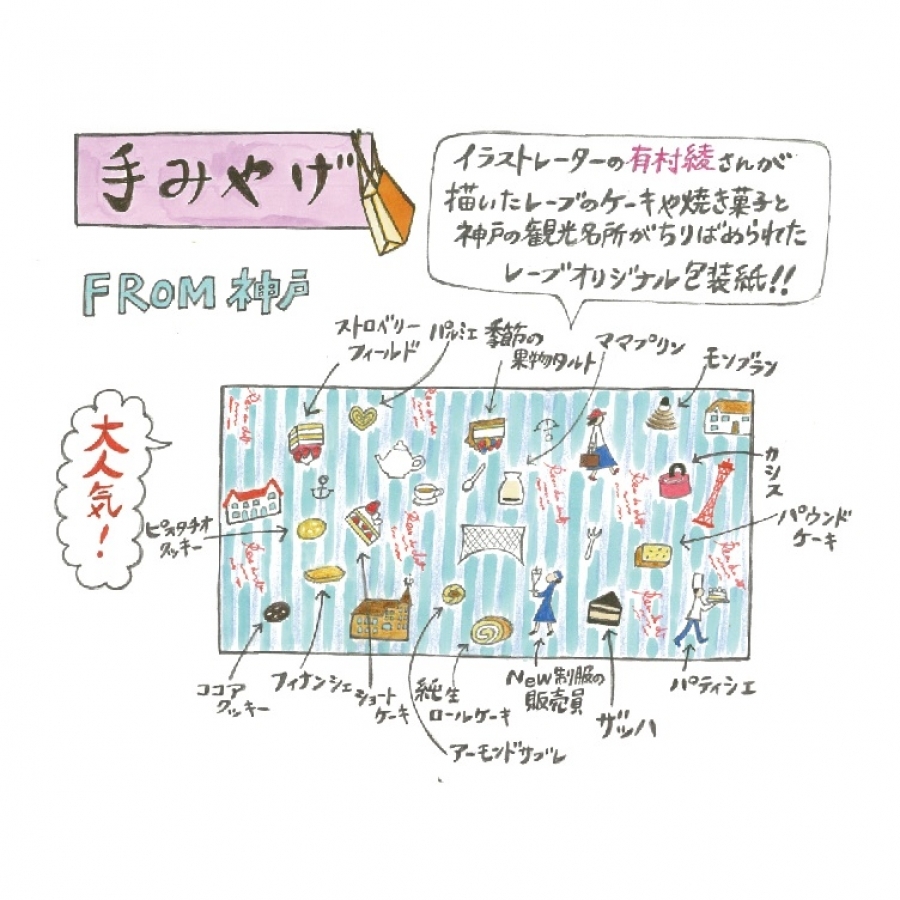 手みやげ
FROM 神戸
イラストレーターの有村綾さんが
描いたレーブのケーキや焼き菓子と
神戸の観光名所がちりばめられた
レーブオリジナル包装紙!!
大人気!
ストロベリー
フィールド
パルミエ
季節の
果物タルト
ママプリン
モンブラン
カシス
パウンド
ケーキ
ピスタチオ
クッキー
ココア
クッキー
フィナンシェ
ショート
ケーキ
純生
ロールケーキ
アーモンドサブレ
New制服の
販売員
ザッハ
パティシエ